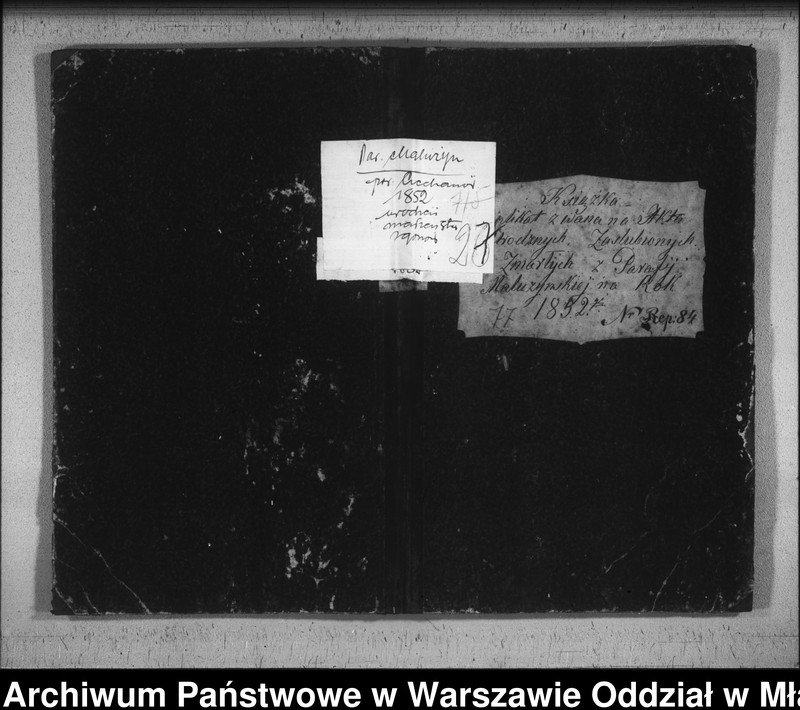 Par. Malużyn
pow. Ciechanów
1852
urodzeń
małżeństw
zgonów
27
Książka
plikat zwana na Akta
rodznych Zaślubionych
Zmarłych z Parafji
Malużynskiej na Rok
77 1852. Nr Rep: 84
Archiwum Państwowe w Warszawie Oddział w Mła